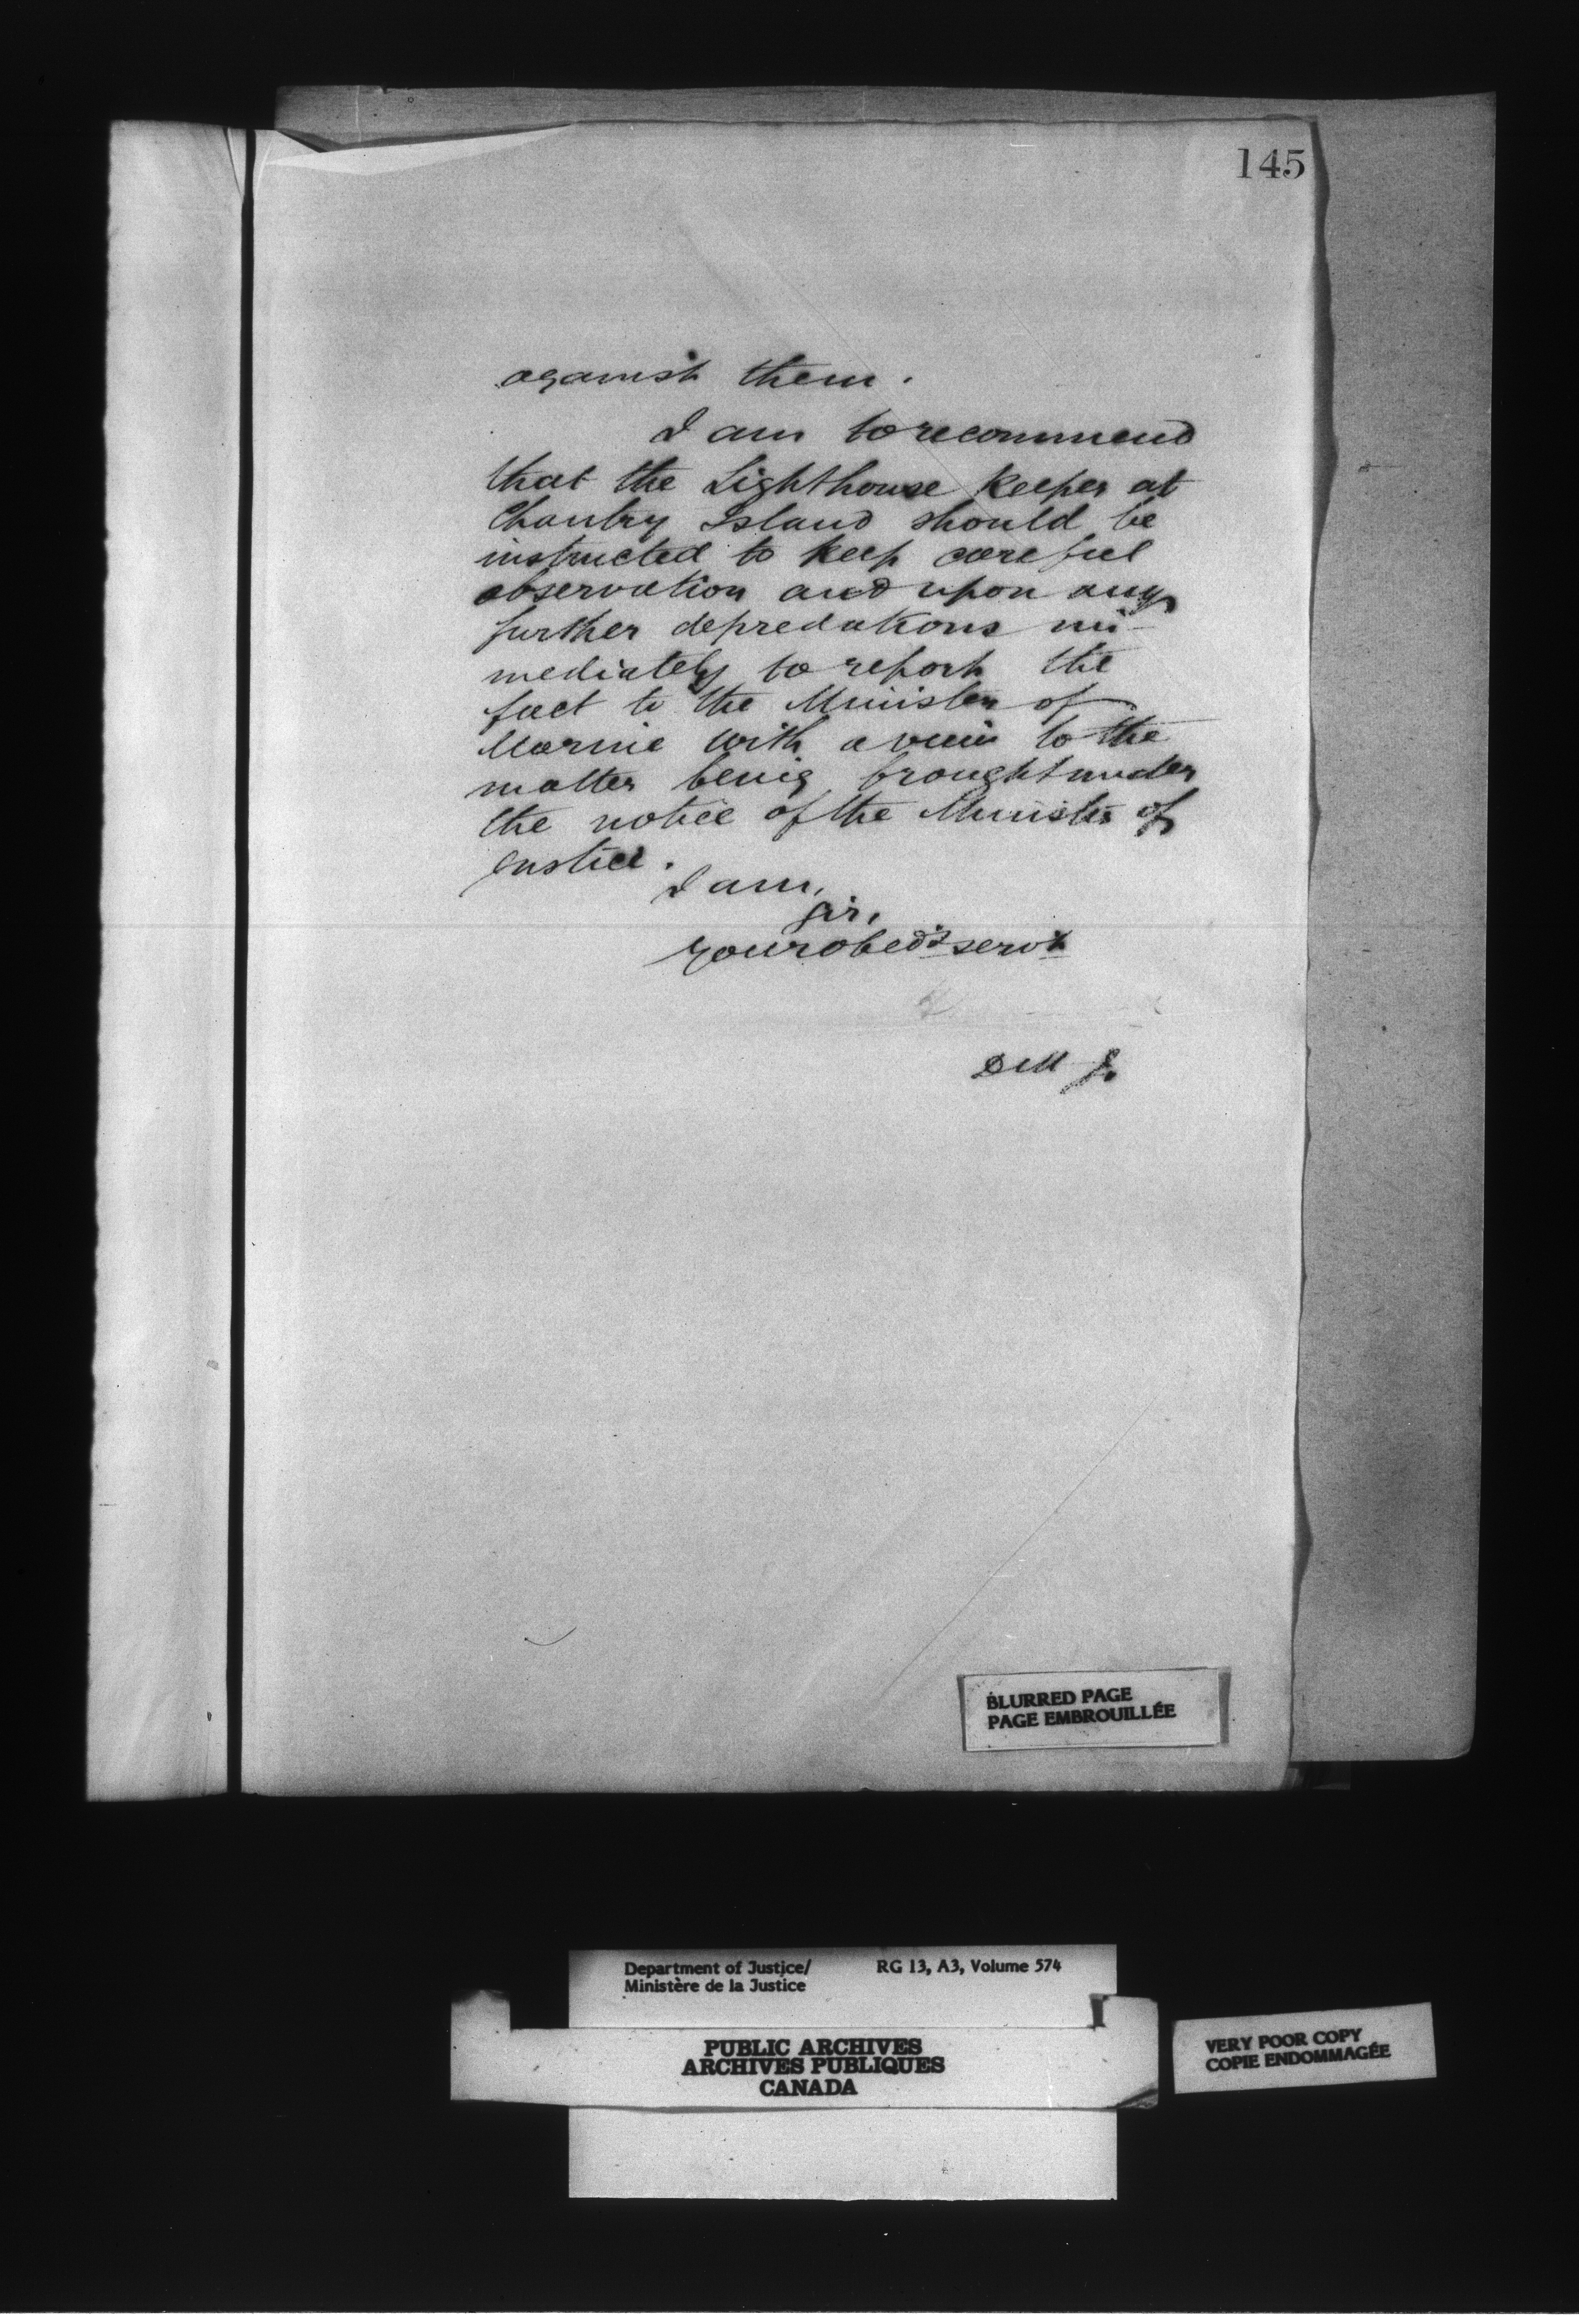 145
against them.
I am to recommend
that the Lighthouse Keeper at
Chantry Island should be
instructed to keep careful
observation and upon any
further depredations im-
mediately to report the
fact to the Minister of
Marine with a view to the
matter being brought under
the notice of the Minister of
Justice.
I am,
Sir,
Your obedt servt
D M J.
BLURRED PAGE
PAGE EMBROUILLÉE
Department of Justice/ RG 13, A3, Volume 574
Ministère de la Justice
PUBLIC ARCHIVES
ARCHIVES PUBLIQUES
CANADA
VERY POOR COPY
COPIE ENDOMMAGÉE